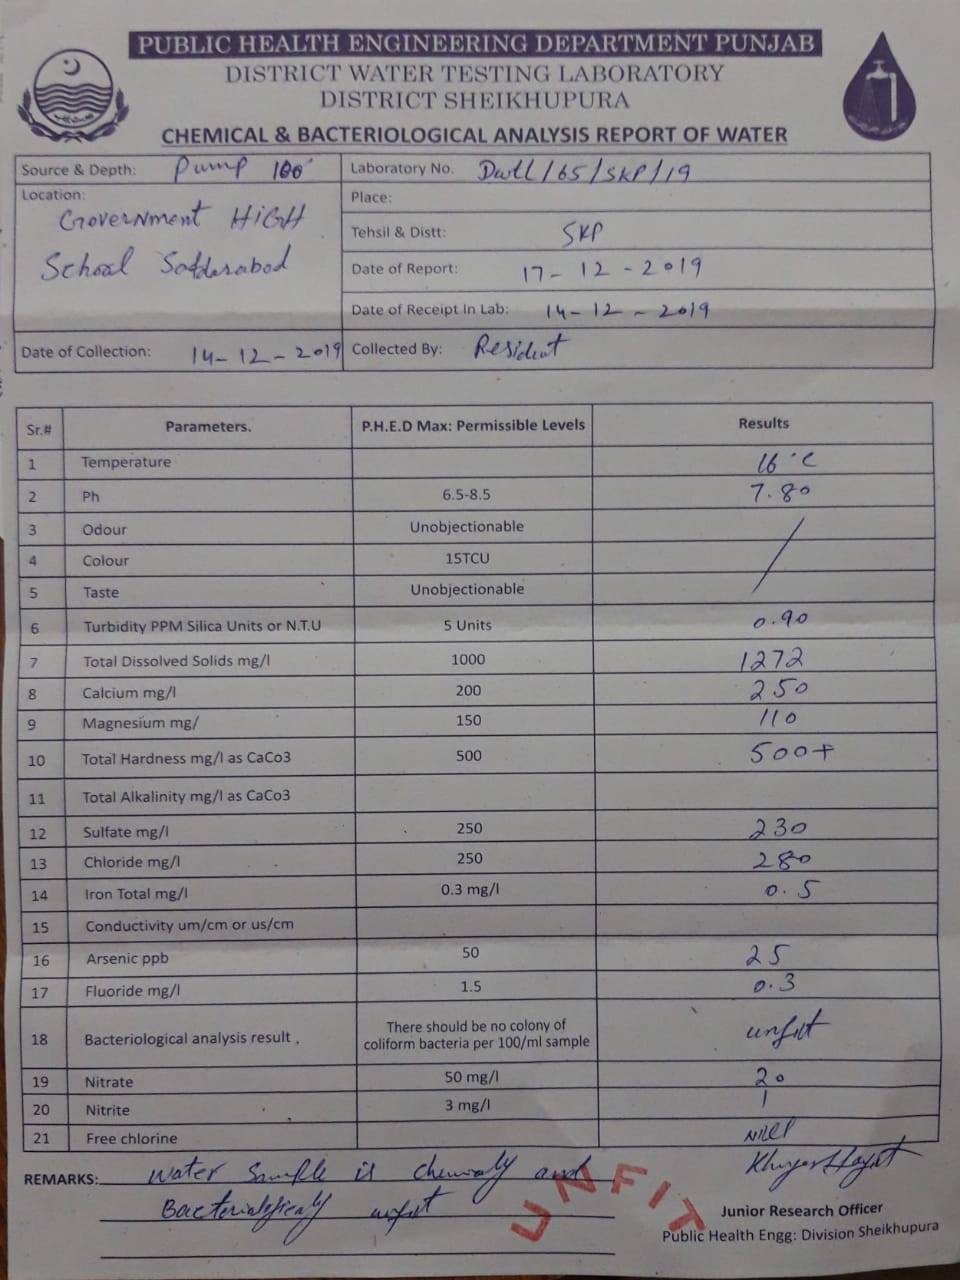 PUBLIC HEALTH ENGINEERING DEPARTMENT PUNJAB
DISTRICT WATER TESTING LABORATORY
DISTRICT SHEIKHUPURA
CHEMICAL & BACTERIOLOGICAL ANALYSIS REPORT OF WATER
Source & Depth: Pump 100' Laboratory No. Dwtl/65/SKP/19
Location: Place:
Government HiGH
Tehsil & Distt: SKP
School
Date of Report: 17-12-2019
Date of Receipt In Lab: 14-12-2019
Date of Collection: 14-12-2019 Collected By: Resident
Sr.# Parameters. P.H.E.D Max: Permissible Levels Results
1 Temperature 16°C
2 Ph 6.5-8.5 7.80
3 Odour Unobjectionable
4 Colour 15TCU
5 Taste Unobjectionable
6 Turbidity PPM Silica Units or N.T.U 5 Units 0.90
7 Total Dissolved Solids mg/l 1000 1272
8 Calcium mg/l 200 250
9 Magnesium mg/ 150 110
10 Total Hardness mg/l as CaCo3 500 500+
11 Total Alkalinity mg/l as CaCo3
12 Sulfate mg/l 250 230
13 Chloride mg/l 250 280
14 Iron Total mg/l 0.3 mg/l 0.5
15 Conductivity um/cm or us/cm
16 Arsenic ppb 50 25
17 Fluoride mg/l 1.5 0.3
18 Bacteriological analysis result, There should be no colony of
coliform bacteria per 100/ml sample unfit
19 Nitrate 50 mg/l 20
20 Nitrite 3 mg/l 1
21 Free chlorine
REMARKS: Water Sample is and
unfit
UNFIT
Junior Research Officer
Public Health Engg: Division Sheikhupura